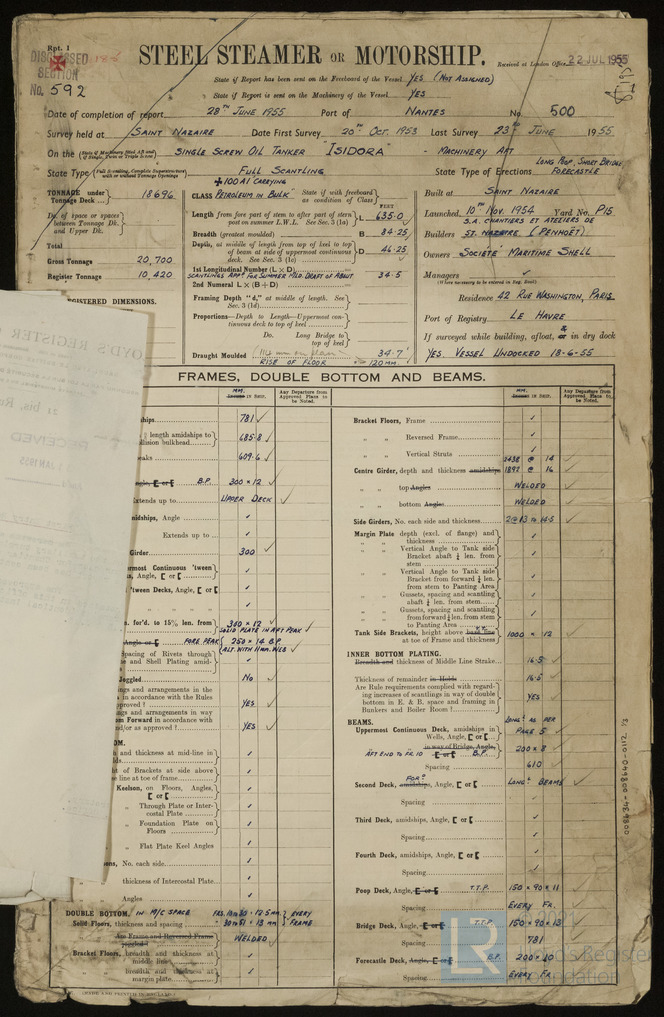 Rpt. 1
STEEL STEAMER OR MOTORSHIP.
Received at London Office 22 JUL 1955
SECTION
No. 592
State if Report has been sent on the Freeboard of the Vessel YES (NOT ASSIGNED)
State if Report is sent on the Machinery of the Vessel YES
Date of completion of report 28TH JUNE 1955 Port of NANTES No. 500
Survey held at SAINT NAZAIRE Date First Survey 20TH OCT. 1953 Last Survey 23 JUNE 1955
On the SINGLE SCREW OIL TANKER "ISIDORA" - MACHINERY AFT
State Type FULL SCANTLING State Type of Erections LONG POOP, SHORT BRIDGE FORECASTLE
TONNAGE under Tonnage Deck 18696
Do. of space or spaces between Tonnage Dk. and Upper Dk.
Total
Gross Tonnage 20,700
Register Tonnage 10,420
REGISTERED DIMENSIONS.
+100A1 CARRYING
CLASS PETROLEUM IN BULK State if with freeboard as condition of Class
FEET
Length from fore part of stem to after part of stern post on summer L.W.L. See Sec. 3 (1a) L 635.0
Breadth (greatest moulded) B 84.25
Depth, at middle of length from top of keel to top of beam at side of uppermost continuous deck. See Sec. 3 (1c) D 46.25
1st Longitudinal Number (L × D)
SCANTLINGS APPD. FOR SUMMER MLD. DRAFT OF ABOUT 34.5
2nd Numeral L × (B + D)
Framing Depth "d," at middle of length. See Sec. 3 (1d)
Proportions—Depth to Length—Uppermost continuous deck to top of keel
Do. Long Bridge to top of keel
Draught Moulded 34.7
RISE OF FLOOR 120 MM.
Built at SAINT NAZAIRE
Launched 10TH NOV. 1954 Yard No. P15
S.A. CHANTIERS ET ATELIERS DE
Builders ST. NAZAIRE (PENHOËT)
Owners SOCIÉTÉ MARITIME SHELL
Managers
(Where necessary to be entered in Reg. Book)
Residence 42 RUE WASHINGTON, PARIS
Port of Registry LE HAVRE
If surveyed while building, afloat, & in dry dock
YES. VESSEL UNDOCKED 18-6-55
FRAMES, DOUBLE BOTTOM AND BEAMS.
MM.
Any Departure from Approved Plans to be Noted.
MM.
Any Departure from Approved Plans to be Noted.
781 ✓
length amidships to collision bulkhead 685.8 ✓
609.6 ✓
B.P. 300 × 12 ✓
Extends up to UPPER DECK ✓
amidships, Angle ✓
Extends up to ✓
Girder 300 ✓
'tween Decks, Angle,
for'd. to 15% len. from 300 × 12 ✓
SOLID PLATE IN AFT PEAK ✓
FORE PEAK 250 × 14 B.P.
Spacing of Rivets through and Shell Plating amid-
Joggled NO ✓
YES ✓
YES ✓
and thickness at mid-line in
of Brackets at side above line at toe of frame
Keelson, on Floors, Angles,
„ Through Plate or Intercostal Plate
„ Foundation Plate on Floors
„ Flat Plate Keel Angles
No. each side
thickness of Intercostal Plate
Angles
DOUBLE BOTTOM. IN M/C SPACE
Solid Floors, thickness and spacing
EVERY FRAME
Are Frame and Reversed Frame joggled? WELDED
Bracket Floors, breadth and thickness at middle line
„ „ breadth and thickness at margin plate
Bracket Floors, Frame ✓
„ „ Reversed Frame ✓
„ „ Vertical Struts ✓
2438 @ 14
Centre Girder, depth and thickness amidships 1892 @ 16
„ „ top Angles WELDED
„ „ bottom Angles WELDED
Side Girders, No. each side and thickness 2 @ 13 TO 14.5
Margin Plate depth (excl. of flange) and thickness
„ „ Vertical Angle to Tank side Bracket abaft ¼ len. from stem
„ „ Vertical Angle to Tank side Bracket from forward ¼ len. from stem to Panting Area
„ „ Gussets, spacing and scantling abaft ¼ len. from stem
„ „ Gussets, spacing and scantling from forward ¼ len. from stem to Panting Area
Tank Side Brackets, height above base line at toe of Frame and thickness 1000 × 12 ✓
INNER BOTTOM PLATING.
Breadth and thickness of Middle Line Strake 16.5
Thickness of remainder in Holds 16.5
Are Rule requirements complied with regarding increases of scantlings in way of double bottom in E. & B. space and framing in Bunkers and Boiler Room? YES
BEAMS.
LONGL. AS PER
Uppermost Continuous Deck, amidships in Wells, Angle, PAGE 5
in way of Bridge, Angle,
AFT END TO FR. 10 B.P. 200 × 8
Spacing 610
Second Deck, amidships, Angle, LONGL. BEAMS
Spacing
Third Deck, amidships, Angle,
Spacing
Fourth Deck, amidships, Angle,
Spacing
Poop Deck, Angle, T.T.P. 150 × 90 × 11
Spacing EVERY FR.
Bridge Deck, Angle, T.T.P. 150 × 90 × 13
Spacing 781
Forecastle Deck, Angle, B.P. 200 × 10
Spacing EVERY FR.
LR
Lloyd's Register
Foundation